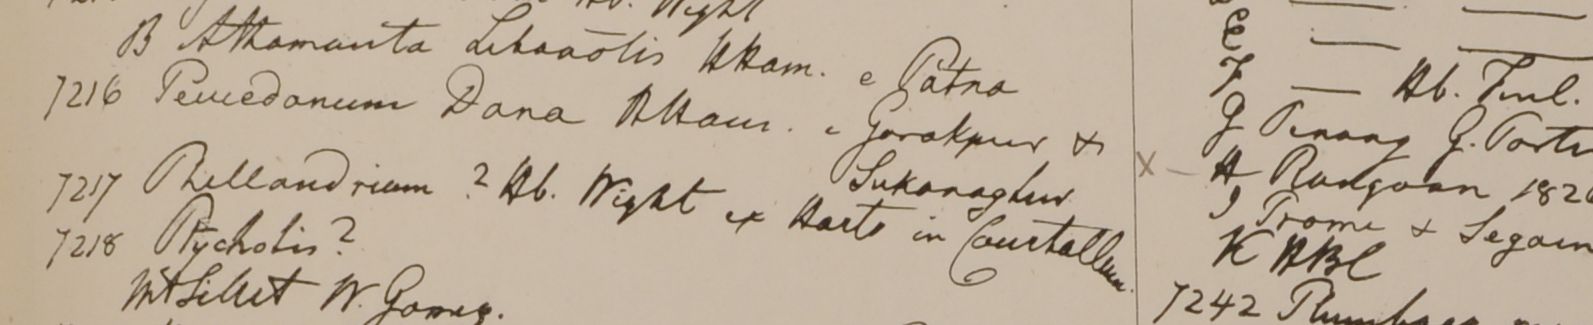 Hb. Wight
B Athamanta Libanotis HHam. e Patna
7216 Peucedanum Dana HHam. e Gorakpur &
Sukanaghur
7217 Phellandrium ? Hb. Wight ex Horto in Courtallum.
7218 Ptychotis ?
Mt Sillet W. Gomez.
E — —
F — Hb. Finl.
G Penang G. Porter
X – H Rangoon 1826
I Prome & Segain
K HBC
7242